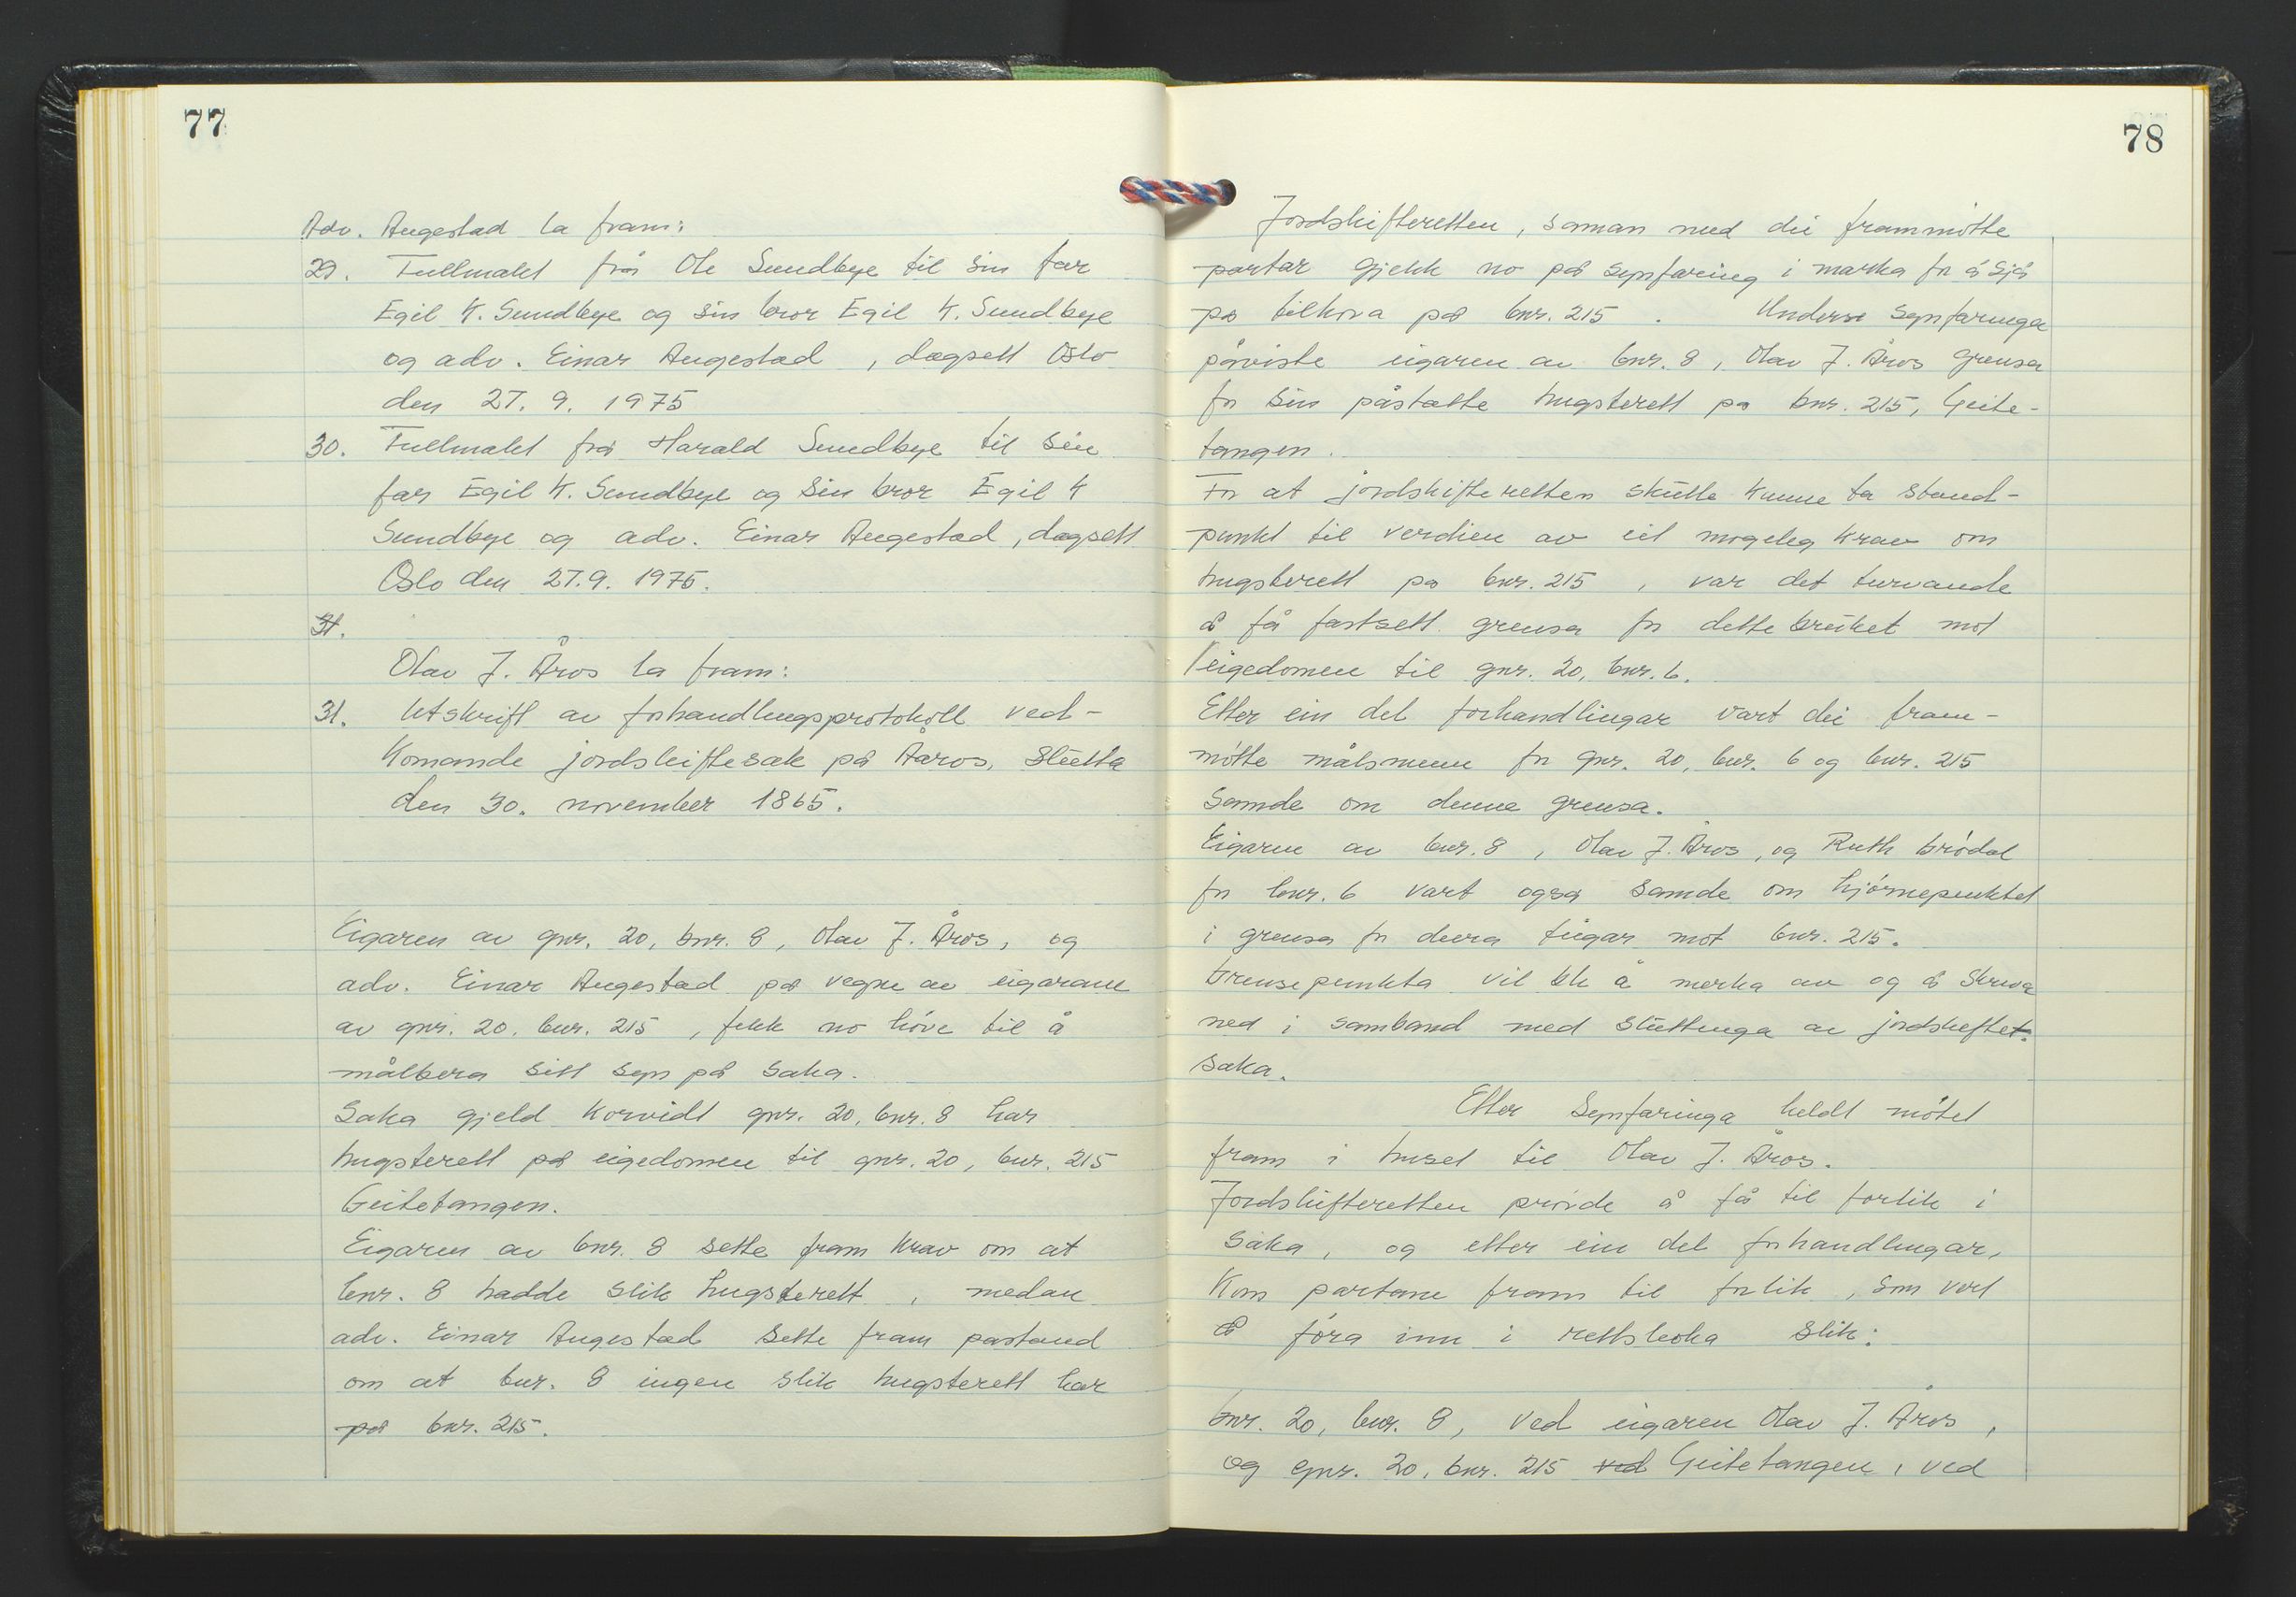 77
Adv. Augestad la fram:
29. Fullmakt frå Ole Sundbye til sin far
Egil K. Sundbye og sin bror Egil K. Sundbye
og adv. Einar Augestad, dagsett Oslo
den 27. 9. 1975
30. Fullmakt frå Harald Sundbye til sin
far Egil K. Sundbye og sin bror Egil K
Sundbye og adv. Einar Augestad, dagsett
Oslo den 27.9. 1975.
31.
Olav J. Åros la fram:
31. Utskrift av forhandlingsprotokoll ved-
komande jordskiftesak på Åaros, slutta
den 30. november 1865.
Eigaren av gnr. 20, bnr. 8, Olav J. Åros, og
adv. Einar Augestad på vegne av eigarane
av gnr. 20. bnr. 215, fekk no høve til å
målbera sitt syn på saka.
Saka gjeld korvidt gnr. 20, bnr. 8 har
hugsterett på eigedomen til gnr. 20, bnr. 215
Geitetangen.
Eigaren av bnr. 8 sette fram krav om at
bnr. 8 hadde slik hugsterett, medan
adv. Einar Augestad sette fram påstand
om at bnr. 8 ingen slik hugsterett har
på bnr. 215.
78
Jordskifteretten, saman med dei frammøtte
partar gjekk no på synfaring i marka for å sjå
på tilhøva på bnr. 215. Under synfaringa
påviste eigaren av bnr. 8, Olav J. Åros grensa
for sin påståtte hugsterett på bnr. 215, Geite-
tangen.
For at jordskifteretten skulle kunne ta stand-
punkt til verdien av eit mogeleg krav om
hugsterett på bnr. 215, var det turvande
å få fastsett grensa for dette bruket mot
eigedomen til gnr. 20, bnr. 6.
Etter ein del forhandlingar vart dei fram-
møtte målsmenn for gnr. 20, bnr. 6 og bnr. 215
samde om denne grensa.
Eigaren av bnr. 8, Olav J. Åros, og Ruth Brødal
for bnr. 6 vart også samde om hjørnepunktet
i grensa for deira teigar mot bnr. 215.
Grensepunkta vil bli å merka av og å skriva
ned i samband med sluttinga av jordskifte-
saka.
Etter synfaringa heldt møtet
fram i huset til Olav J. Åros.
Jordskifteretten prøvde å få til forlik i
saka, og etter ein del forhandlingar,
kom partane fram til forlik, som vert
å føra inn i rettsboka slik:
Gnr. 20, bnr. 8, ved eigaren Olav J. Åros,
og gnr. 20, bnr. 215 ved Geitetangen, ved